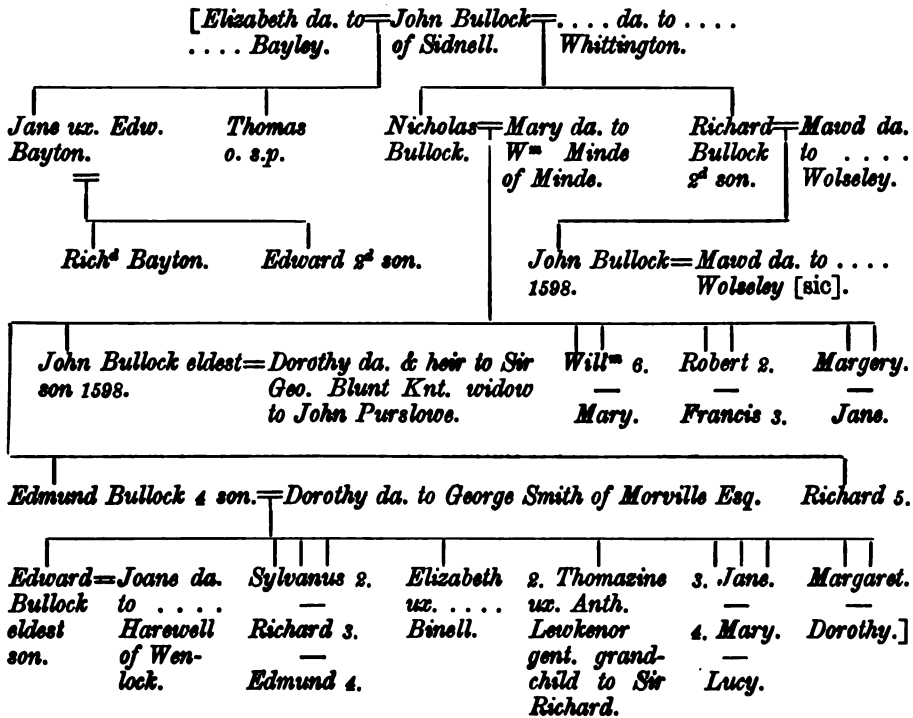 [Elizabeth da. to=John Bullock=. . . . da. to . . . .
. . . . Bayley. of Sidnell. Whittington.
Jane ux. Edw. Bayton.
Thomas o. s.p.
Nicholas Bullock.=Mary da. to Wm Minde of Minde.
Richard Bullock 2d son.=Mawd da. to . . . . Wolseley.
Richd Bayton. Edward 2d son.
John Bullock=Mawd da. to . . . .
1598. Wolseley [sic].
John Bullock eldest=Dorothy da. & heir to Sir
son 1598. Geo. Blunt Knt. widow
to John Purslowe.
Willm 6.
—
Mary.
Robert 2.
—
Francis 3.
Margery.
—
Jane.
Edmund Bullock 4 son.=Dorothy da. to George Smith of Morville Esq. Richard 5.
Edward=Joane da.
Bullock to . . . .
eldest Harewell
son. of Wen-
lock.
Sylvanus 2.
—
Richard 3.
—
Edmund 4.
Elizabeth
ux. . . . . .
Binell.
2. Thomazine
ux. Anth.
Lewkenor
gent. grand-
child to Sir
Richard.
3. Jane.
—
4. Mary.
—
Lucy.
Margaret.
—
Dorothy.]